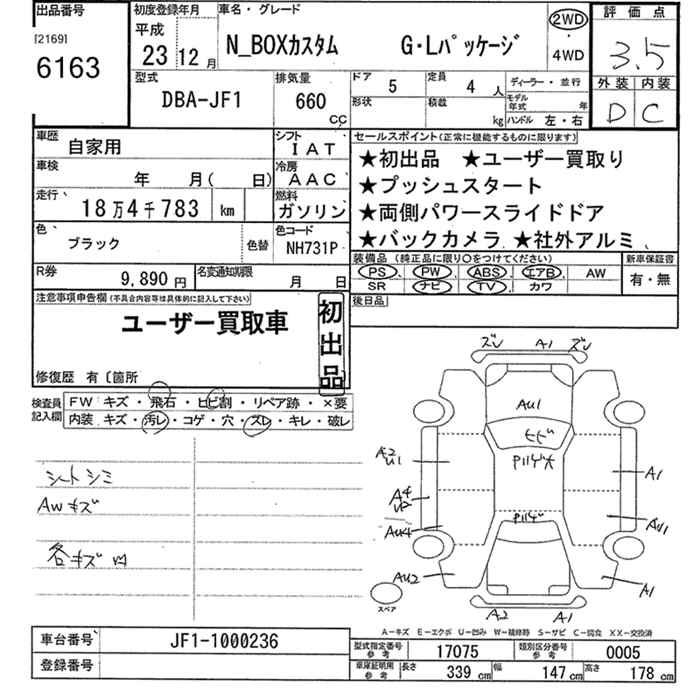 出品番号
[2169]
6163
初度登録年月
平成
23 12 月
車名・グレード
N_BOXカスタム G・Lパッケージ
2WD
4WD
評価点
3.5
外装 内装
D C
型式
DBA-JF1
排気量
660 cc
ドア
5
定員
4 人
形状
積載
kg
ディーラー・並行
モデル年式 年
ハンドル 左・右
車歴
自家用
シフト
IAT
車検
年 月( 日)
冷房
AAC
走行
18万4千783 km
燃料
ガソリン
色
ブラック
色替
色コード
NH731P
R券
9,890 円
名変通知期限
月 日
セールスポイント(正常に機能するものに限ります)
★初出品 ★ユーザー買取り
★プッシュスタート
★両側パワースライドドア
★バックカメラ ★社外アルミ
装備品 (純正品に限り○をつけてください)
PS PW ABS エアB AW
SR ナビ TV カワ
新車保証書
有・無
後日品
注意事項申告欄(不具合内容等は具体的に記入して下さい)
ユーザー買取車
初出品
修復歴 有〔箇所
検査員記入欄
FW キズ・飛石・ヒビ割・リペア跡・×要
内装 キズ・汚レ・コゲ・穴・スレ・キレ・破レ
シートシミ
AWキズ
各キズ凹
ズレ A1 ズレ
AU1
ヒビ
A2
U1
A1
A4
U2
AU4
AU1
AU2
A1
A2 A1
スペア
A−キズ E−エクボ U−凹み W−補修跡 S−サビ C−腐食 XX−交換済
車台番号
JF1-1000236
登録番号
型式指定番号
参考
17075
類別区分番号
参考
0005
車庫証明用
参考
長さ 339 cm 幅 147 cm 高さ 178 cm